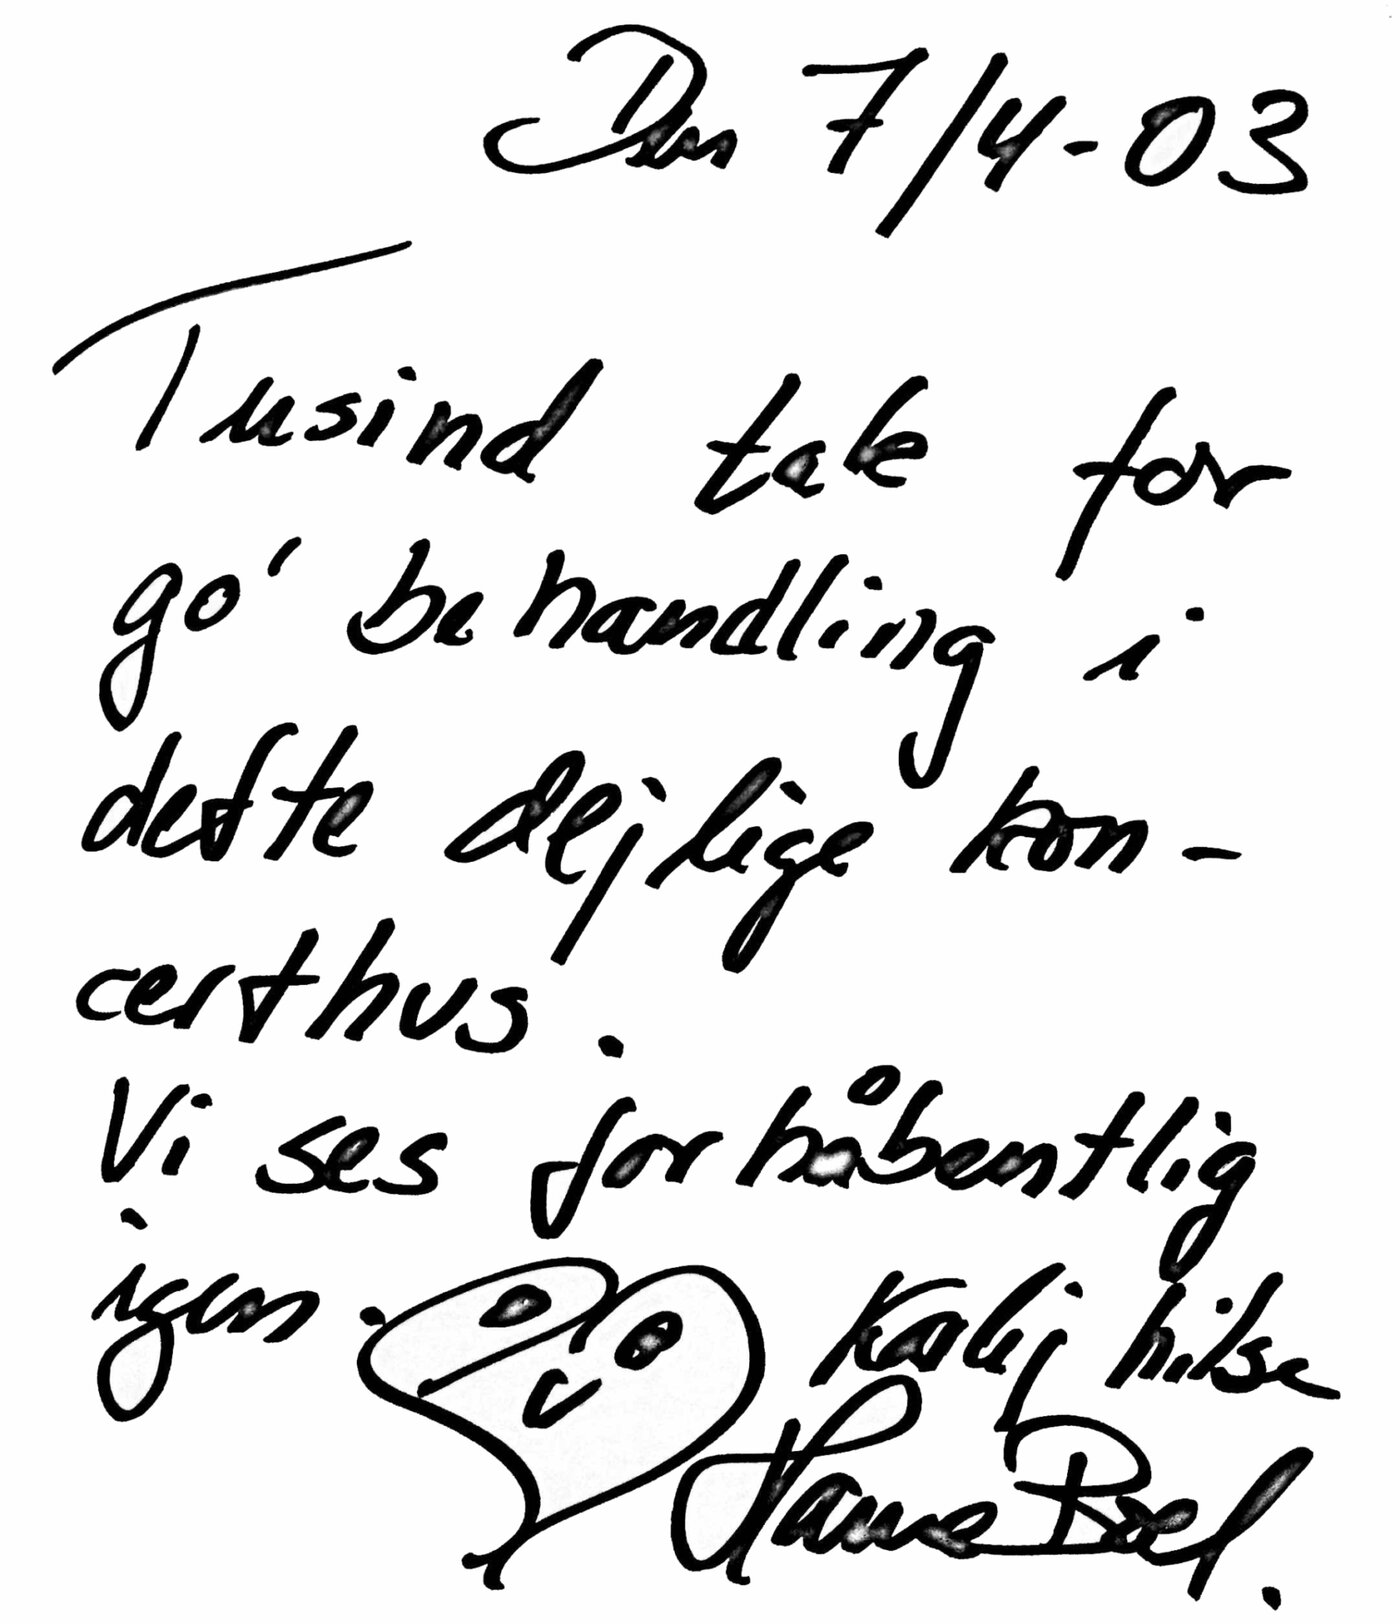 Den 7/4-03
Tusind tak for
go' behandling i
dette dejlige kon-
certhus.
Vi ses forhåbentlig
igen. Kærlig hilse
Hanne Boel.